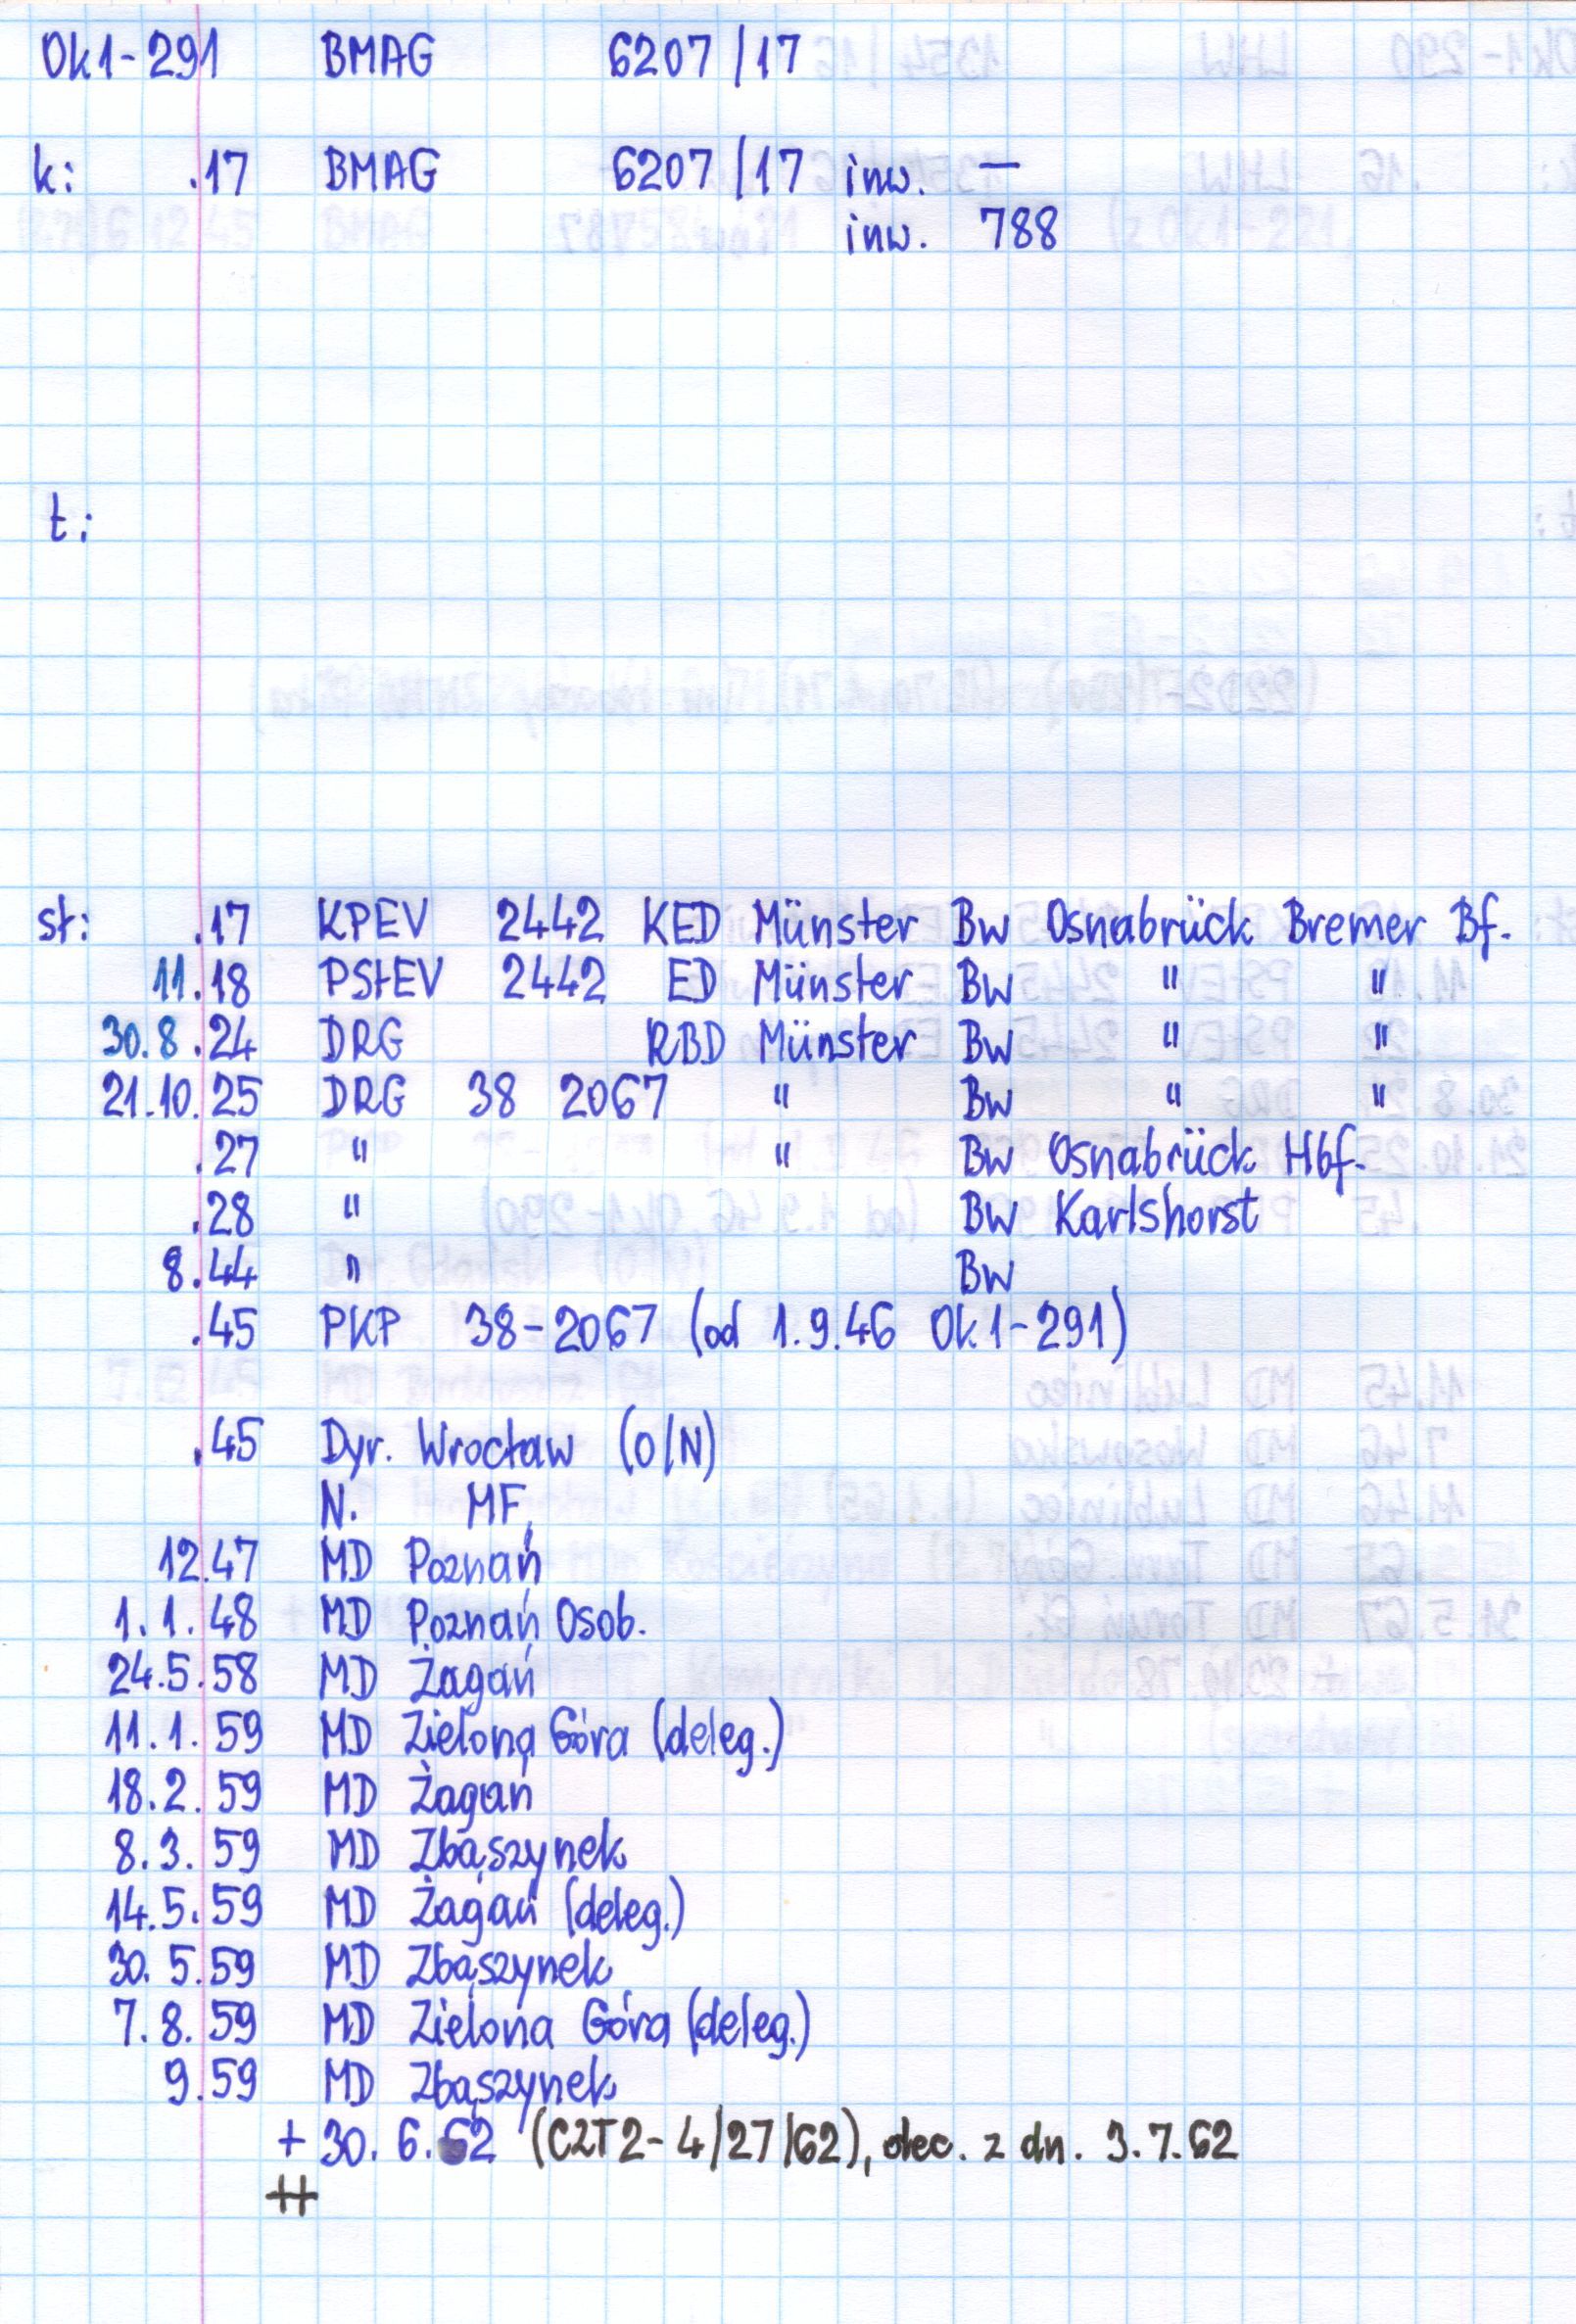 Ok1-291 BMAG 6207/17
k: .17 BMAG 6207/17 inw. —
inw. 788
t:
st: .17 KPEV 2442 KED Münster Bw Osnabrück Bremer Bf.
11.18 PStEV 2442 ED Münster Bw " "
30.8.24 DRG RBD Münster Bw " "
21.10.25 DRG 38 2067 " Bw " "
.27 " " Bw Osnabrück Hbf.
.28 " Bw Karlshorst
8.44 " Bw
.45 PKP 38-2067 (od 1.9.46 Ok1-291)
.45 Dyr. Wrocław (O/N)
N. MF,
12.47 MD Poznań
1.1.48 MD Poznań Osob.
24.5.58 MD Żagań
11.1.59 MD Zielona Góra (deleg.)
18.2.59 MD Żagań
8.3.59 MD Zbąszynek
14.5.59 MD Żagań (deleg.)
30.5.59 MD Zbąszynek
7.8.59 MD Zielona Góra (deleg.)
9.59 MD Zbąszynek
+ 30.6.62 (CZT2-4/27/62), dec. z dn. 3.7.62
++